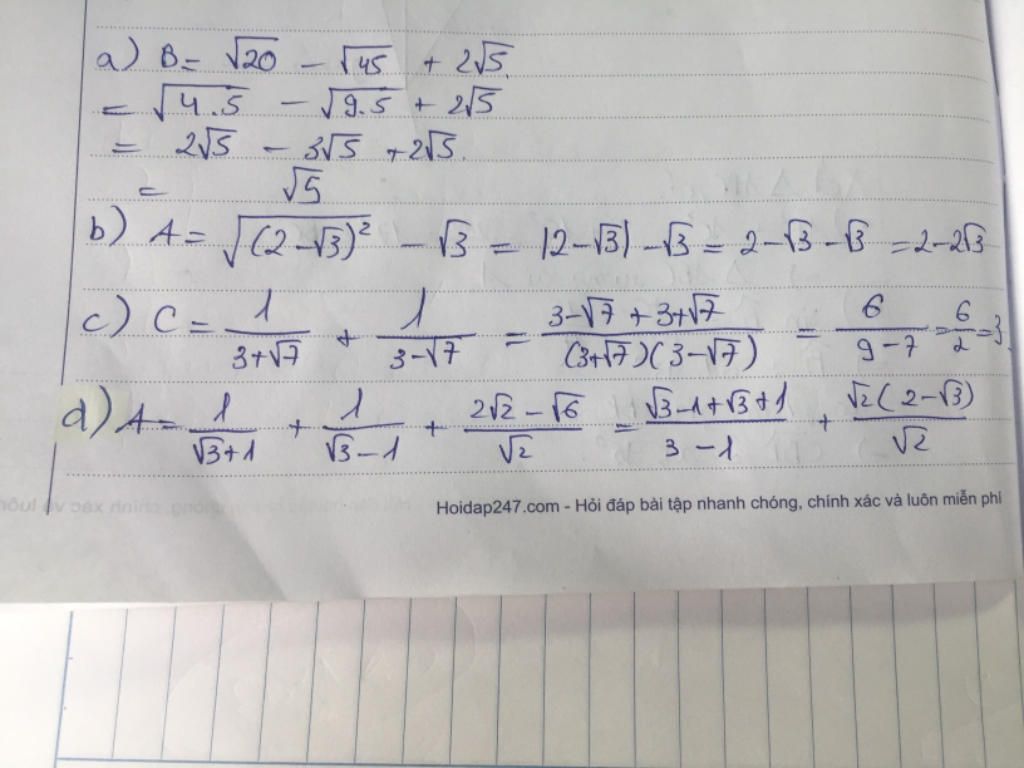 a) B = √20 - √45 + 2√5.
= √4.5 - √9.5 + 2√5
= 2√5 - 3√5 + 2√5.
= √5
b) A = √(2-√3)² - √3 = |2-√3| - √3 = 2-√3-√3 = 2-2√3
c) C = 1/(3+√7) + 1/(3-√7) = (3-√7+3+√7)/((3+√7)(3-√7)) = 6/(9-7) = 6/2 = 3.
d) A = 1/(√3+1) + 1/(√3-1) + (2√2-√6)/√2 = (√3-1+√3+1)/(3-1) + √2(2-√3)/√2
Hoidap247.com - Hỏi đáp bài tập nhanh chóng, chính xác và luôn miễn phí